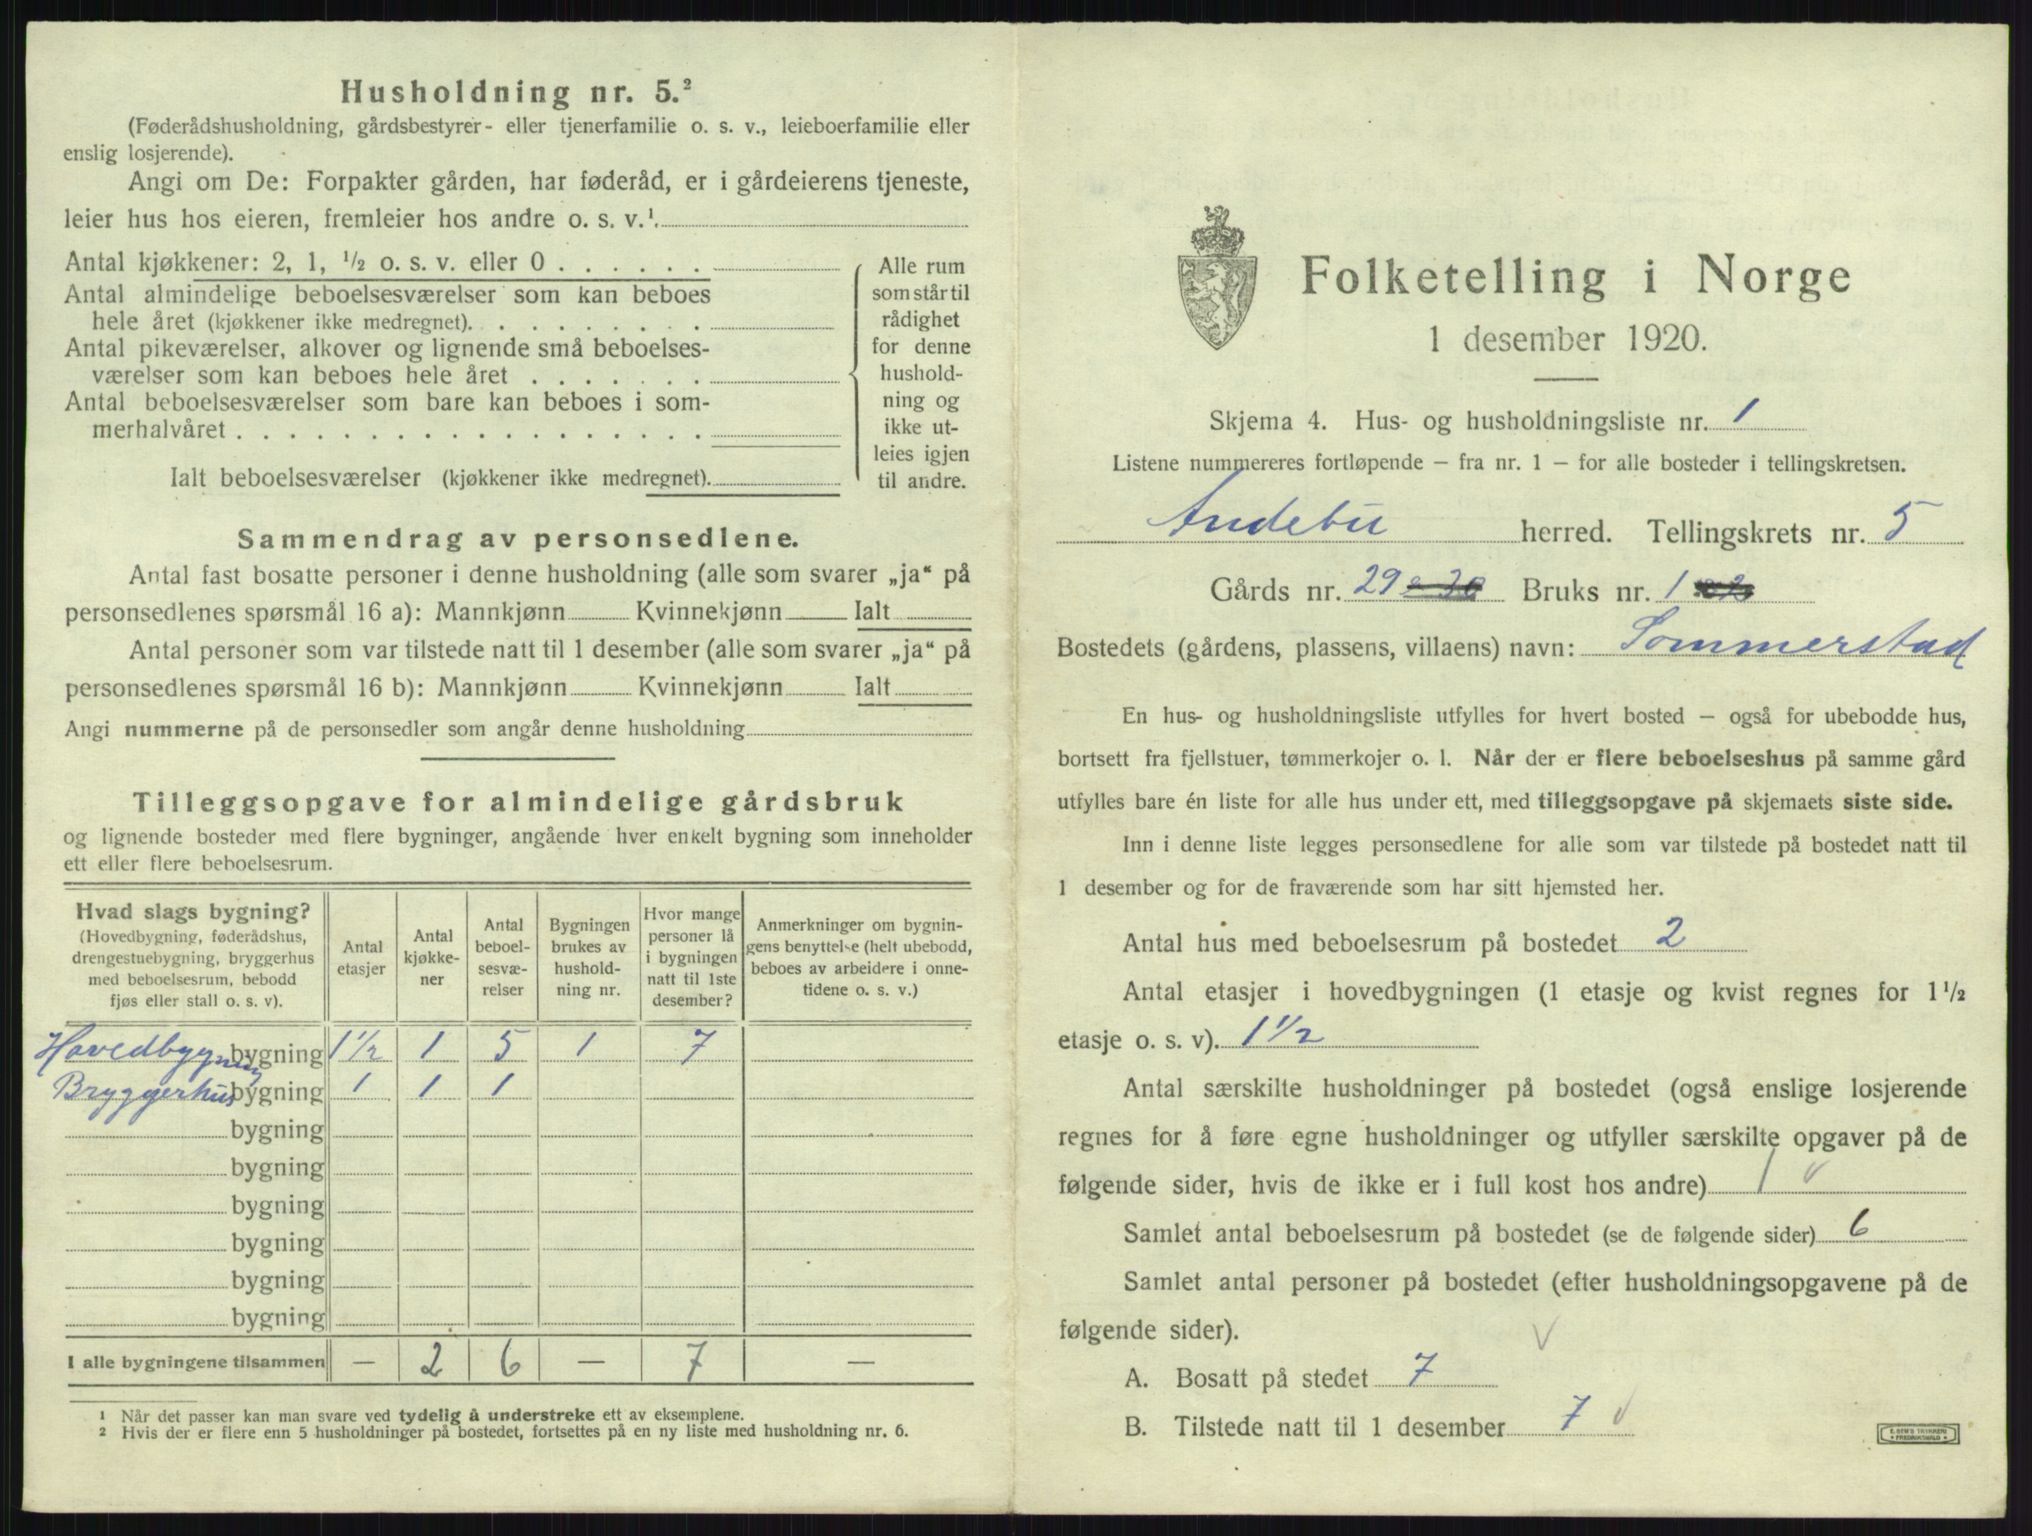 Husholdning nr. 5.²
(Føderådshusholdning, gårdsbestyrer- eller tjenerfamilie o. s. v., leieboerfamilie eller
enslig losjerende).
Angi om De: Forpakter gården, har føderåd, er i gårdeierens tjeneste,
leier hus hos eieren, fremleier hos andre o. s. v.¹
Antal kjøkkener: 2, 1, ½ o. s. v. eller 0 . . . . . .
Antal almindelige beboelsesværelser som kan beboes
hele året (kjøkkener ikke medregnet). . . . . . . . .
Antal pikeværelser, alkover og lignende små beboelses-
værelser som kan beboes hele året . . . . . . .
Antal beboelsesværelser som bare kan beboes i som-
merhalvåret . . . . . . . . . . . . . . . . . .
Ialt beboelsesværelser (kjøkkener ikke medregnet).
Alle rum
som står til
rådighet
for denne
hushold-
ning og
ikke ut-
leies igjen
til andre.
Sammendrag av personsedlene.
Antal fast bosatte personer i denne husholdning (alle som svarer „ja“ på
personsedlenes spørsmål 16 a): Mannkjønn Kvinnekjønn Ialt
Antal personer som var tilstede natt til 1 desember (alle som svarer „ja“ på
personsedlenes spørsmål 16 b): Mannkjønn Kvinnekjønn Ialt
Angi nummerne på de personsedler som angår denne husholdning
Tilleggsopgave for almindelige gårdsbruk
og lignende bosteder med flere bygninger, angående hver enkelt bygning som inneholder
ett eller flere beboelsesrum.
Hvad slags bygning?
(Hovedbygning, føderådshus,
drengestuebygning, bryggerhus
med beboelsesrum, bebodd
fjøs eller stall o. s. v).
Antal
etasjer
Antal
kjøkke-
ner
Antal
beboel-
sesvæ-
relser
Bygningen
brukes av
hushold-
ning nr.
Hvor mange
personer lå
i bygningen
natt til 1ste
desember?
Anmerkninger om bygnin-
gens benyttelse (helt ubebodd,
beboes av arbeidere i onne-
tidene o. s. v.)
Hovedbygning bygning 1½ 1 5 1 7
Bryggerhus bygning 1 1 1
bygning
bygning
bygning
bygning
bygning
bygning
I alle bygningene tilsammen — 2 6 — 7 —
¹ Når det passer kan man svare ved tydelig å understreke ett av eksemplene.
² Hvis der er flere enn 5 husholdninger på bostedet, fortsettes på en ny liste med husholdning nr. 6.
Folketelling i Norge
1 desember 1920.
Skjema 4. Hus- og husholdningsliste nr. 1
Listene nummereres fortløpende – fra nr. 1 – for alle bosteder i tellingskretsen.
Andebu herred. Tellingskrets nr. 5
Gårds nr. 29 Bruks nr. 1
Bostedets (gårdens, plassens, villaens) navn: Sommerstad
En hus- og husholdningsliste utfylles for hvert bosted – også for ubebodde hus,
bortsett fra fjellstuer, tømmerkojer o. l. Når der er flere beboelseshus på samme gård
utfylles bare én liste for alle hus under ett, med tilleggsopgave på skjemaets siste side.
Inn i denne liste legges personsedlene for alle som var tilstede på bostedet natt til
1 desember og for de fraværende som har sitt hjemsted her.
Antal hus med beboelsesrum på bostedet 2
Antal etasjer i hovedbygningen (1 etasje og kvist regnes for 1½
etasje o. s. v). 1½
Antal særskilte husholdninger på bostedet (også enslige losjerende
regnes for å føre egne husholdninger og utfyller særskilte opgaver på de
følgende sider, hvis de ikke er i full kost hos andre) 1 v
Samlet antal beboelsesrum på bostedet (se de følgende sider) 6
Samlet antal personer på bostedet (efter husholdningsopgavene på de
følgende sider). v
A. Bosatt på stedet 7
B. Tilstede natt til 1 desember 7 v